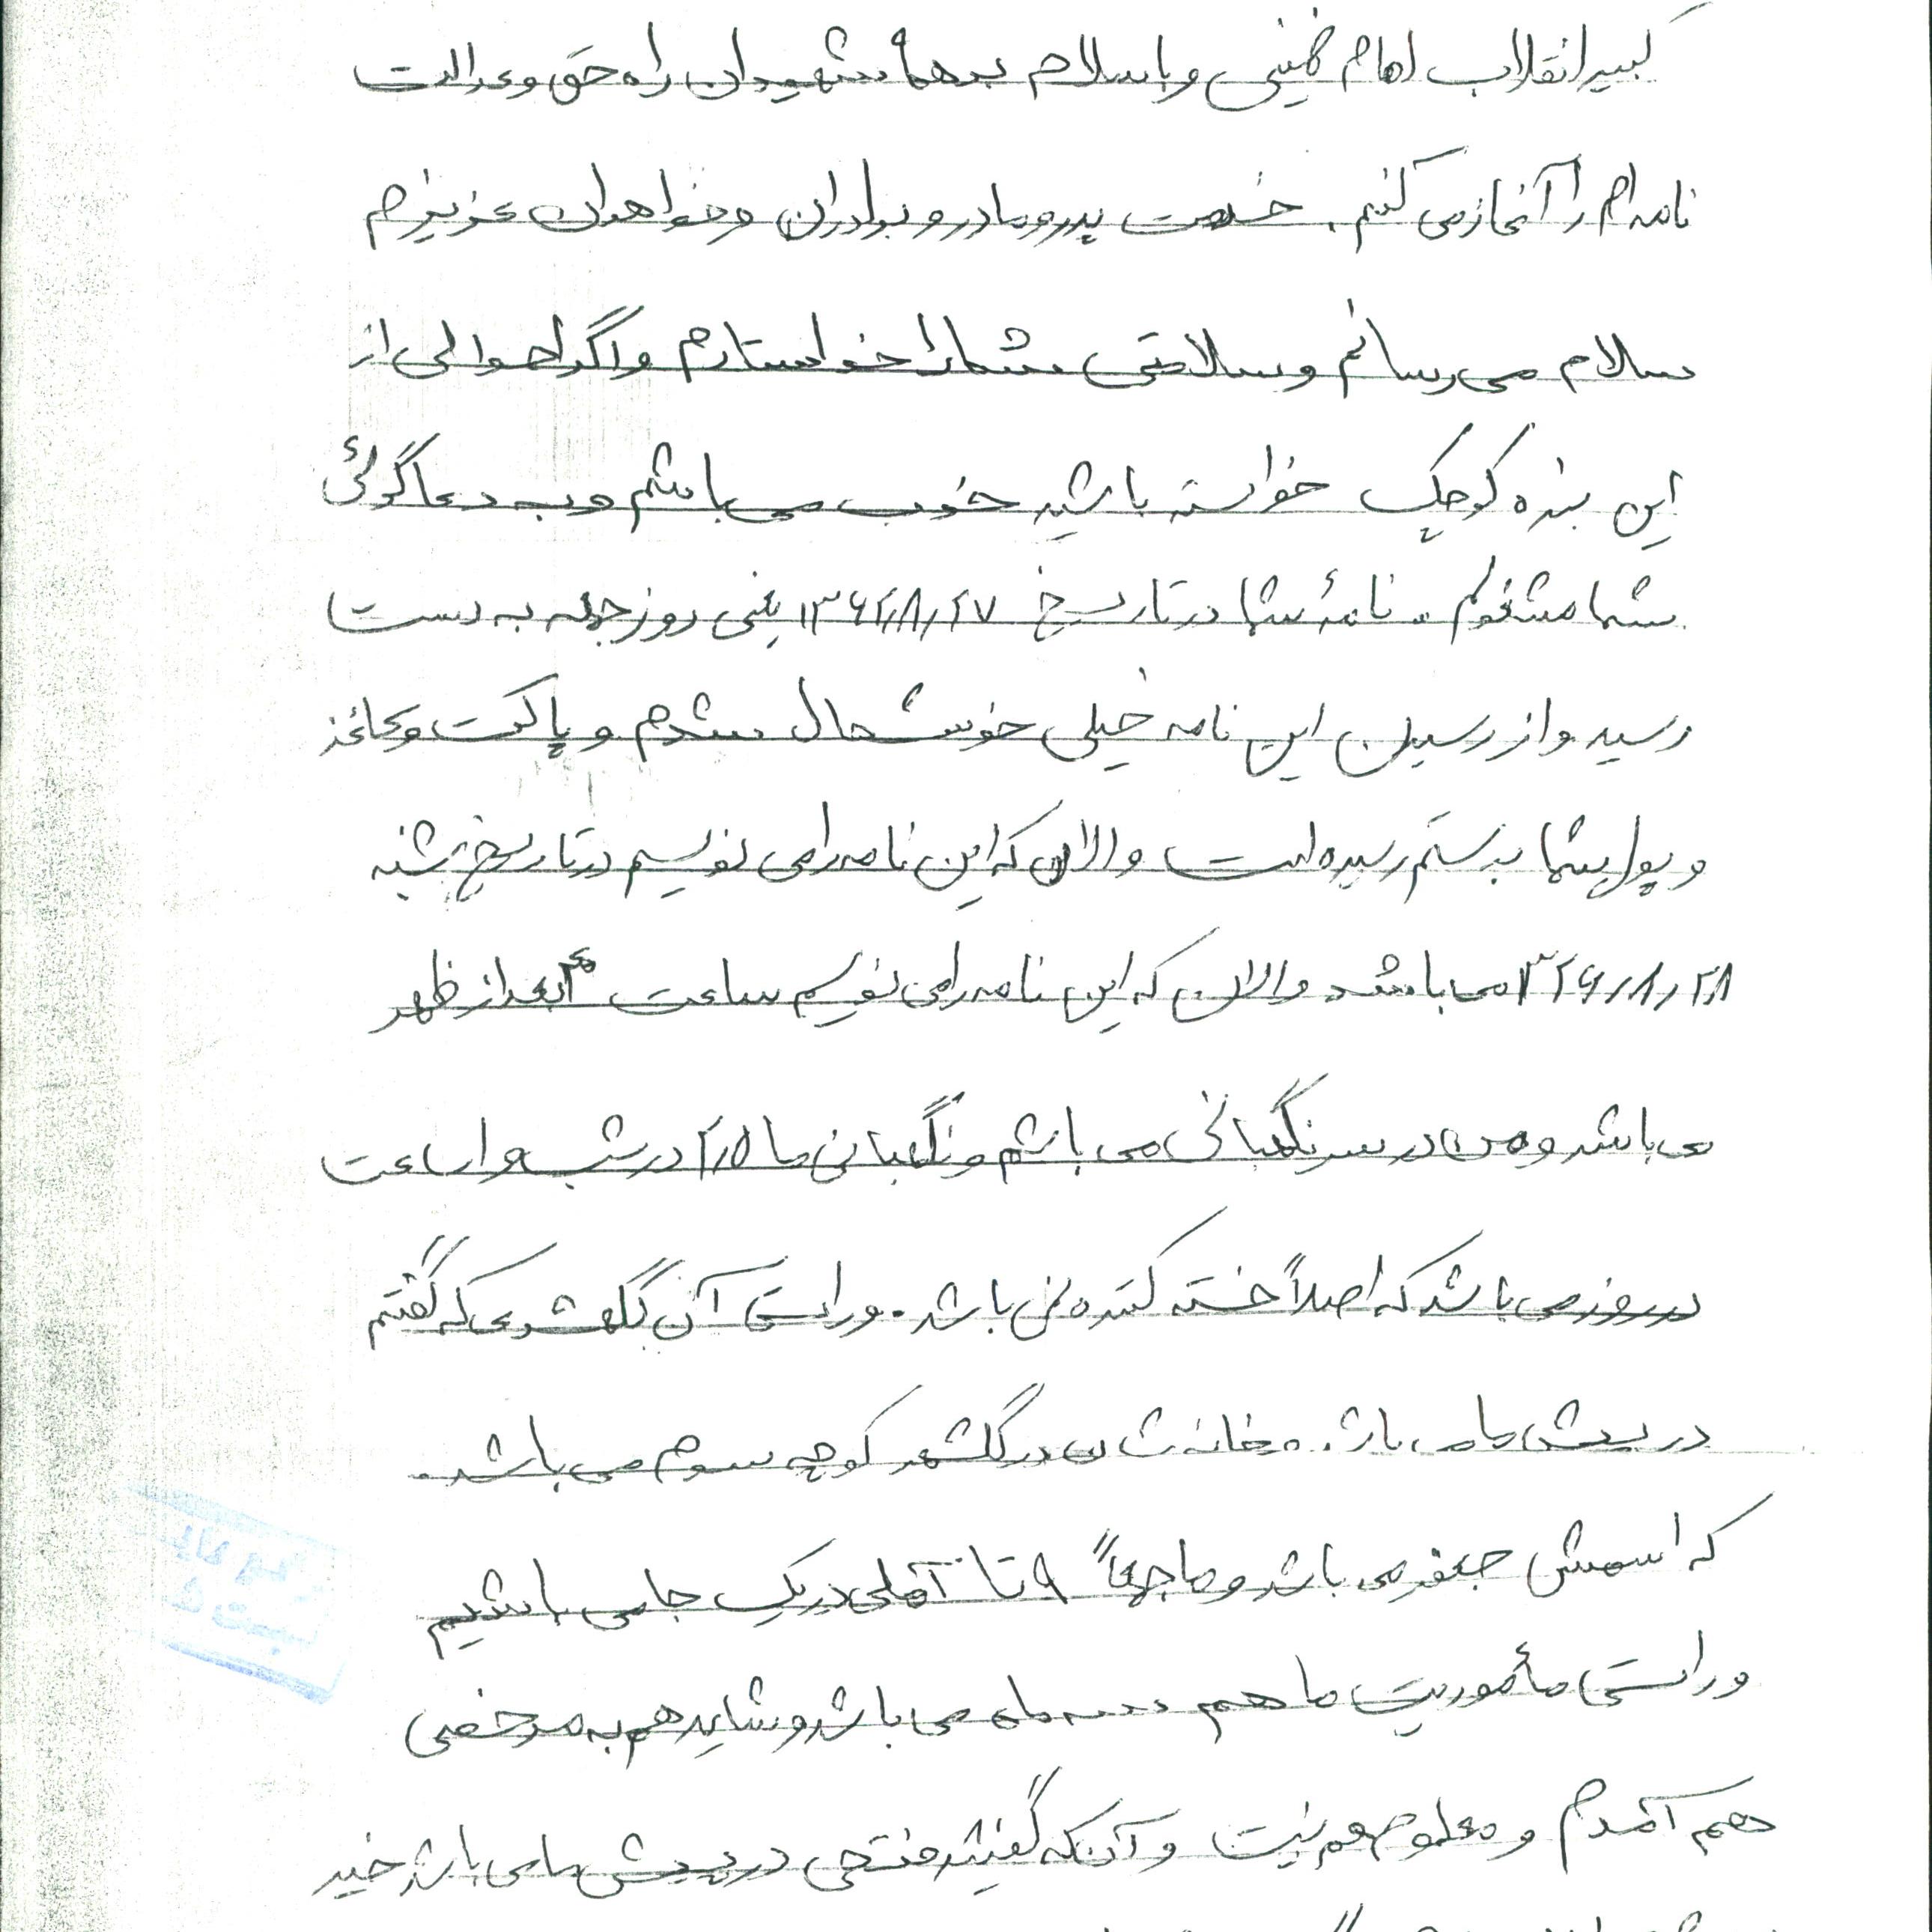 کبیر انقلاب امام خمینی و با سلام به همه شهیدان راه حق و عدالت
نامه ام را آغاز می کنم. خدمت پدر و مادر و برادران و خواهران عزیزم
سلام می رسانم و سلامتی شما را خواستارم و اگر احوالی از
این بنده کوچک خواسته باشید خوب می باشم و به دعاگوئی
شما مشغولم. نامۀ شما در تاریخ ۱۳۶۲/۸/۲۷ یعنی روز جمعه به دست
رسید و از رسیدن این نامه خیلی خوشحال شدم و پاکت و کاغذ
و پول شما به دستم رسیده است و الان که این نامه را می نویسم در تاریخ شنبه
۱۳۶۲/۸/۲۸ می باشد و الان که این نامه را می نویسم ساعت بعد از ظهر
می باشد و من در سر نگهبانی می باشم و نگهبانی ما ۲/۵ در شب و ۱ ساعت
در روز می باشد که اصلاً خسته کننده نمی باشد. و راستی آن گلشهری که گفتم
در پیش ما می باشد. خانه شان در گلشهر کوچه سوم می باشد.
که اسمش جعفر می باشد و ما جمعاً ۹ تا آملی در یک جا می باشیم
و راستی مأموریت ما هم سه ماه می باشد و شاید هم به مرخصی
هم آمدم و معلوم هم نیست و آن که گفتید فتحی در پیش ما می باشد خیر